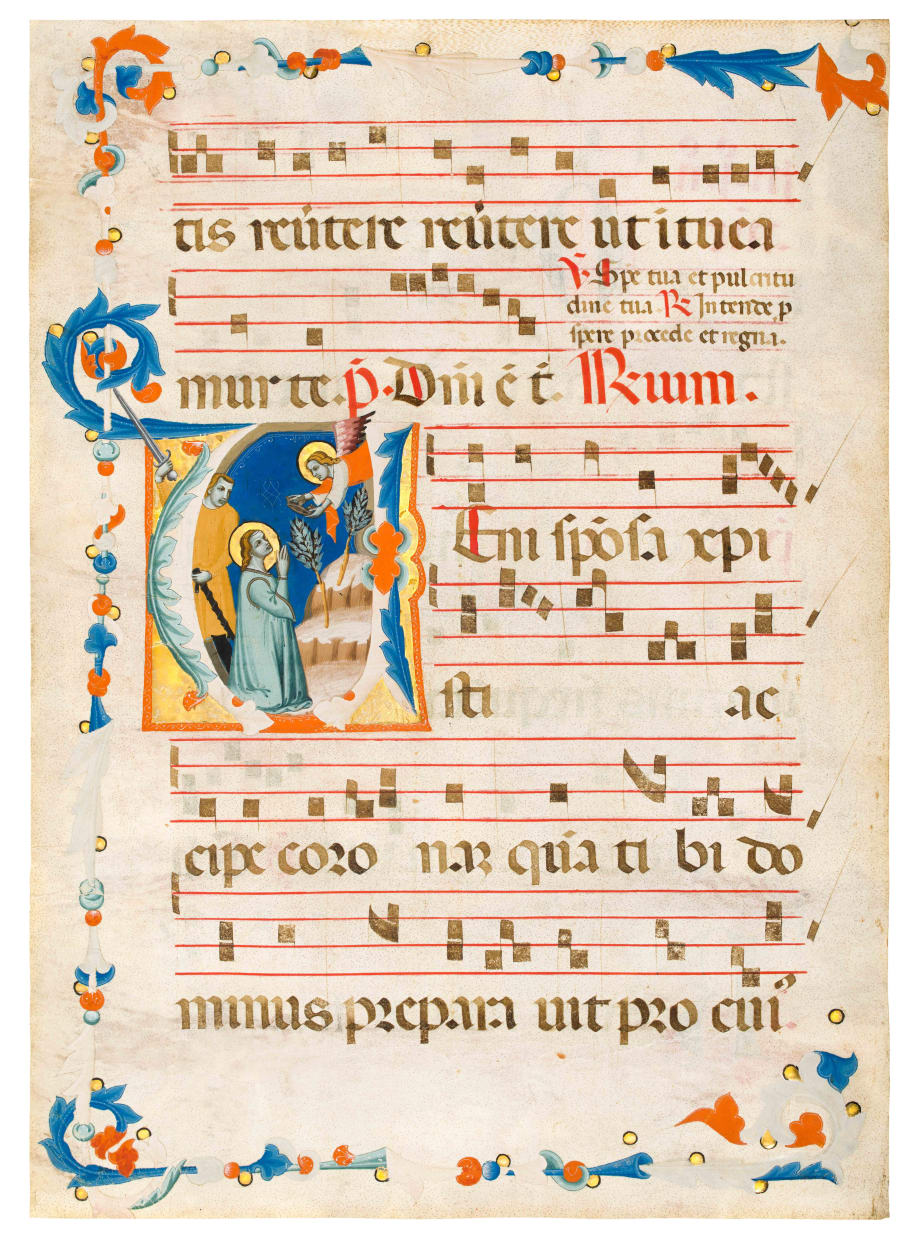 tis reũtere reũtere ut ituea
℣. Spe tua et pulcritu
dine tua ℟ Intende p
spere procede et regna.
mur te. p̄. Dñi ē t̄. ℟eium.
Eni spõsa xpi
sti ac
cipe coro naz quã ti bi do
minus prepara uit pro cui⁹